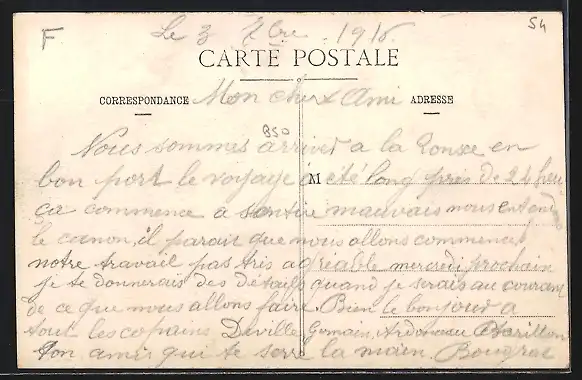 F
54
Le 3 Xbre 1916.
CARTE POSTALE
CORRESPONDANCE Mon cher Ami ADRESSE
350
Nous sommes arriver a la en
bon port le voyage a été long près de 24 heu
M
ça commence a sentire mauvais nous entendons
le canon, il parait que nous allons commencer
notre travail pas tris agréable mercredi prochain
je te donnerais des détails quand je serais au courant
de ce que nous allons faire. Bien le bonjour a
tout les copains Deville Gomain,
Ton amis qui te serre la main.